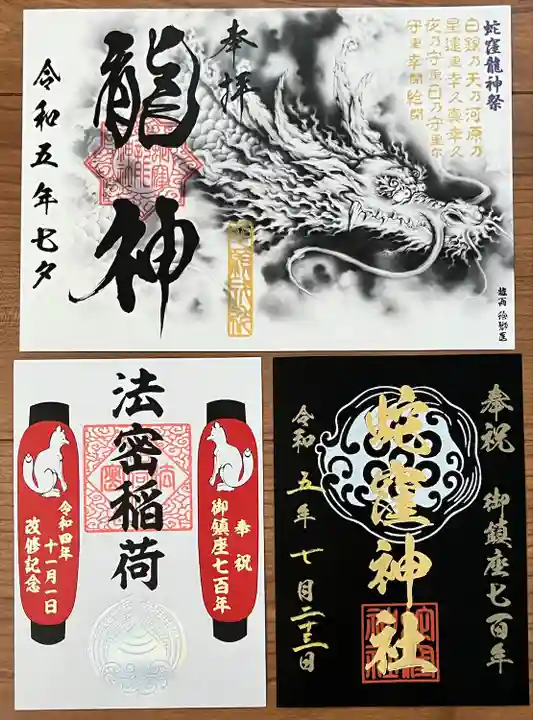 蛇窪龍神祭
白銀乃天乃河原乃
星達里幸久真幸久
夜乃守里日乃守里尓
守里幸開給開
奉拝
龍神
令和五年七夕
奉祝
御鎮座七百年
法密稲荷
令和四年
十一月一日
改修記念
奉祝 御鎮座七百年
蛇窪神社
令和五年七月二十三日